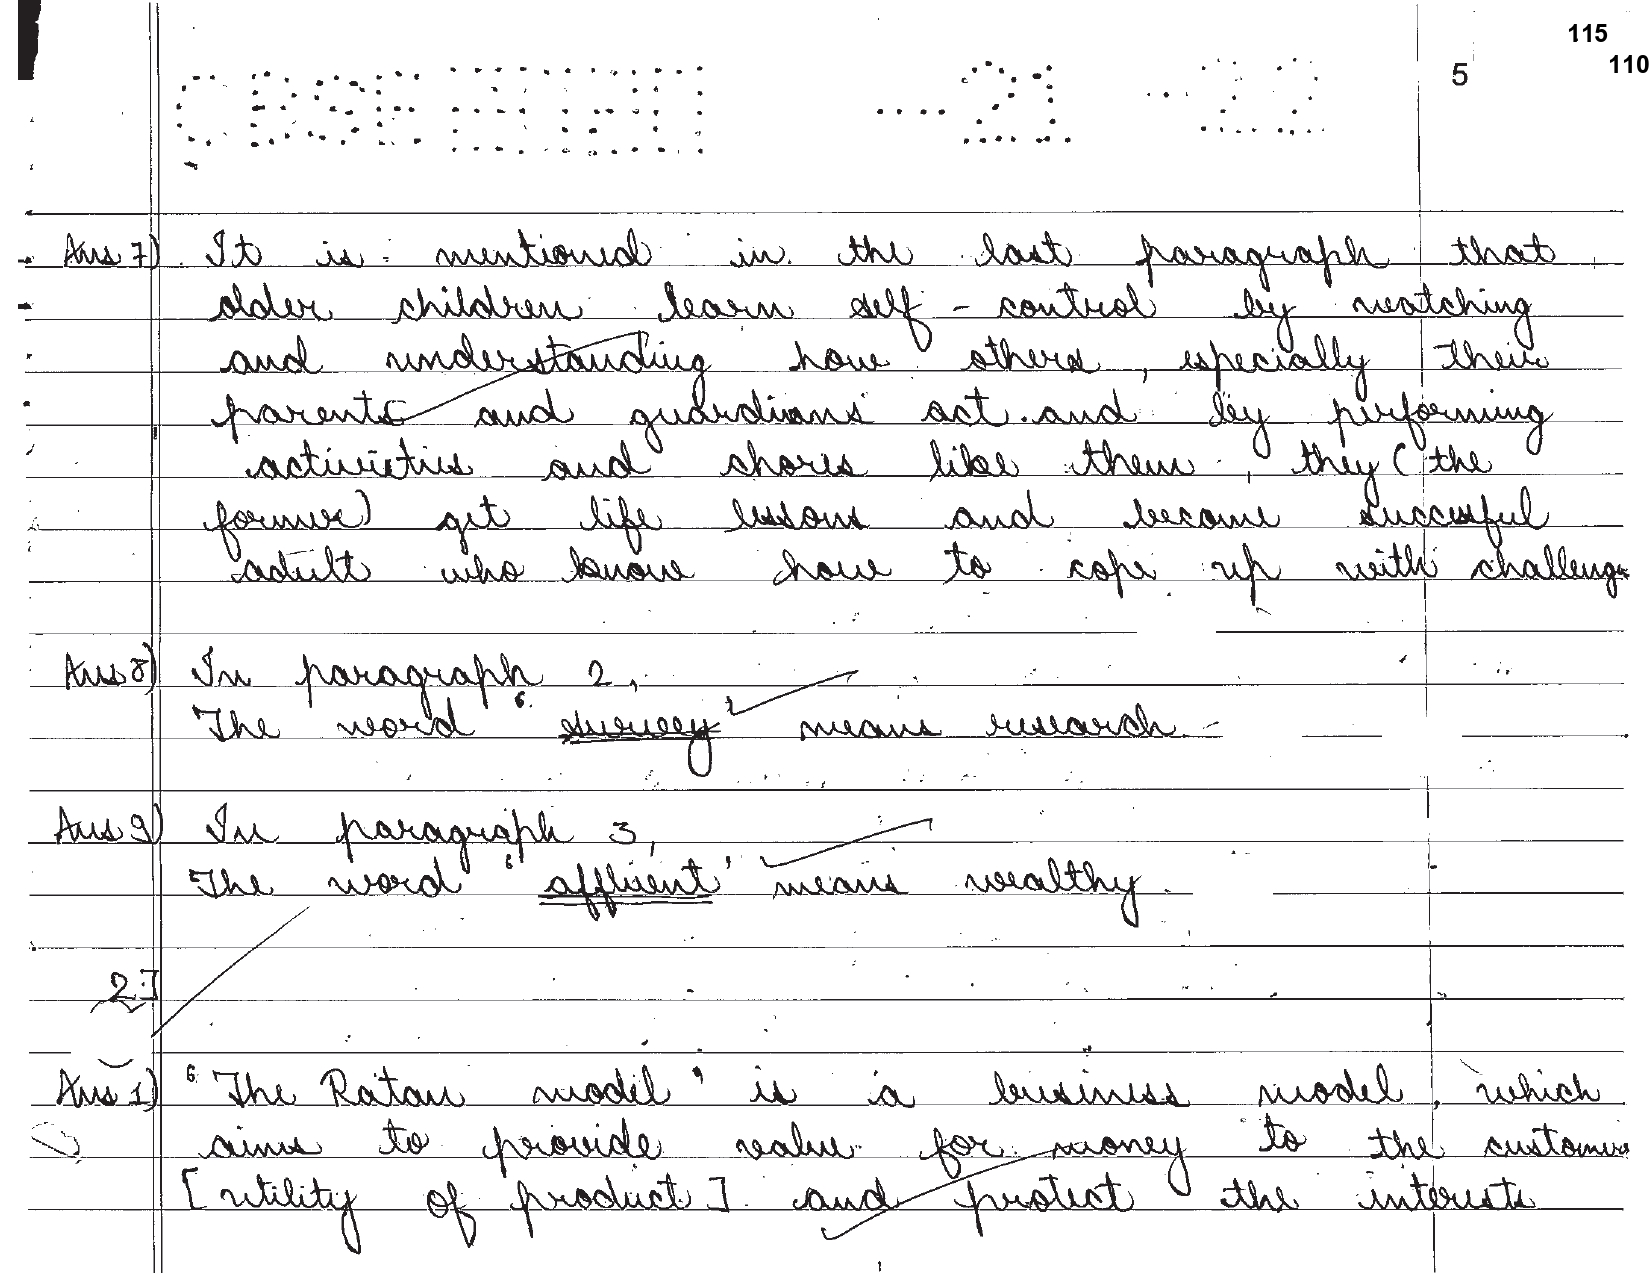 115
110
5
CBSE
21 - 22
Ans 7) It is mentioned in the last paragraph that
older children learn self - control by watching
and understanding how others, especially their
parents and guardians act and by performing
activieties and chores like them, they (the
former) get life lessons and become successful
adult who know how to cope up with challenges
Ans 8) In paragraph 2,
The word 'survey' means research.
Ans 9) In paragraph 3,
The word 'affluent' means wealthy.
2]
Ans 1) 'The Ratan model' is a business model, which
aims to provide value for money to the customers
[utility of product] and protect the interests